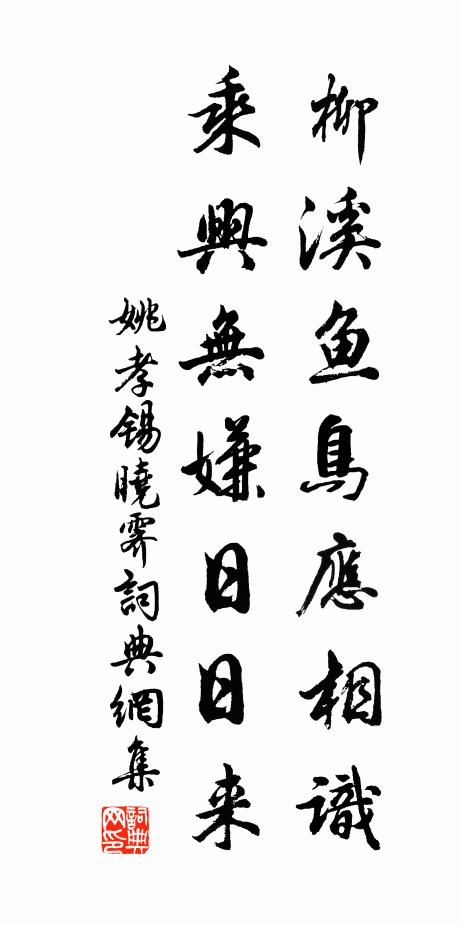 柳溪鱼鳥應相識
乘興無嫌日日来
姚孝锡曉霽詞典網集
詞典网印